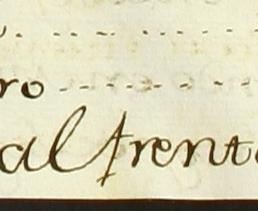 ro
al frent